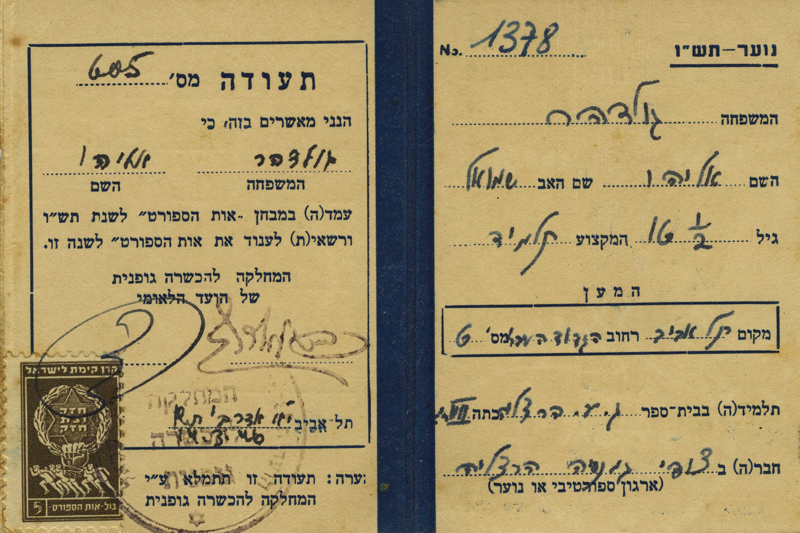 No. 1378
נוער-תש"ו
המשפחה גולדברג
השם אליהו שם האב שמואל
גיל טו ½ המקצוע תלמיד
המען
מקום תל אביב רחוב הגדוד העברי מס' 6
תלמיד(ה) בבית-ספר ג.ע. הרצליה כתה VII
חבר(ה) ב צופי גמנסיה הרצליה
(ארגון ספורטיבי או נוער)
תעודה מס'
הנני מאשרים בזה, כי
גולדברג אליהו
המשפחה השם
עמד(ה) במבחן "אות הספורט" לשנת תש"ו
ורשאי(ת) לענוד את אות הספורט" לשנה זו.
המחלקה להכשרה גופנית
של הועד הלאומי
תל-אביב
המחלקה
ערה: תעודה זו תתמלא ע"י
המחלקה להכשרה גופנית
קרן קימת לישראל
חזק
חזק
בול-אות הספורט- 5